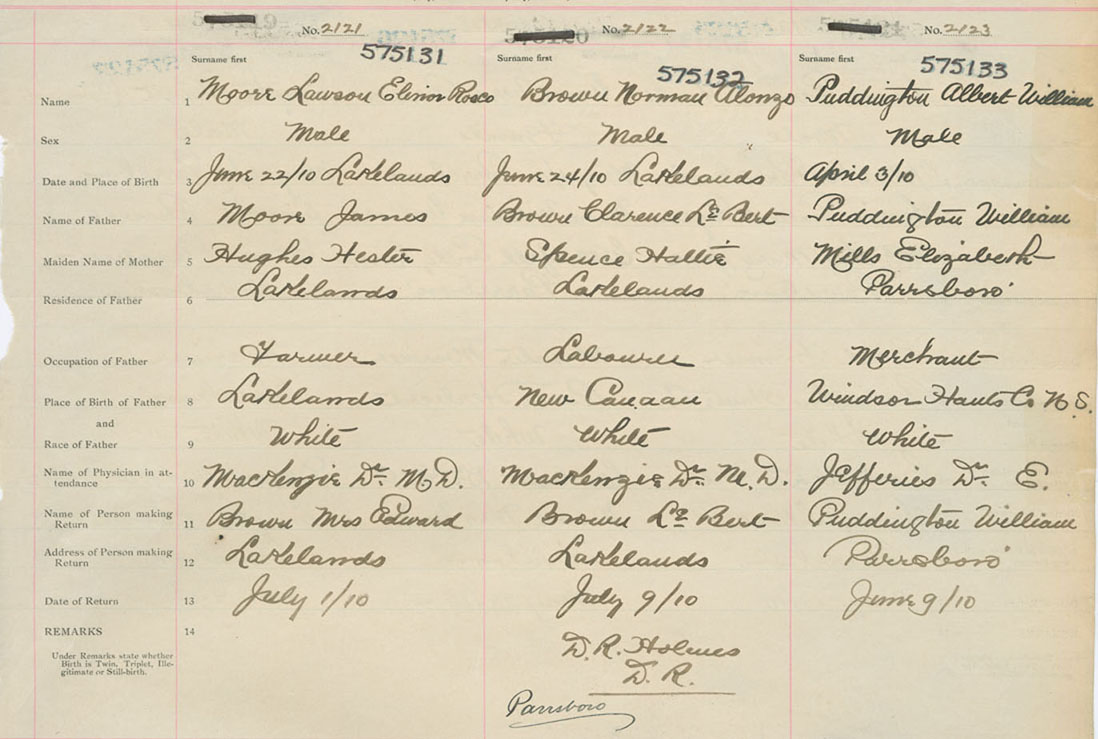 No. 2121 No. 2122 No. 2123
575131 575132 575133
Surname first Surname first Surname first
Name 1 Moore Lawson Elinor Rosco Brown Norman Alonzo Puddington Albert William
Sex 2 Male Male Male
Date and Place of Birth 3 June 22/10 Lakelands June 24/10 Lakelands April 3/10
Name of Father 4 Moore James Brown Clarence Le Bert Puddington William
Maiden Name of Mother 5 Hughes Hester Spence Hattie Mills Elizabeth
Residence of Father 6 Lakelands Lakelands Parrsboro'
Occupation of Father 7 Farmer Labourer Merchant
Place of Birth of Father 8 Lakelands New Canaan Windsor Hants Co N.S.
and
Race of Father 9 White White White
Name of Physician in at-
tendance 10 MacKenzie Dr. M.D. MacKenzie Dr. M.D. Jefferies Dr. E.
Name of Person making
Return 11 Brown Mrs Edward Brown Le Bert Puddington William
Address of Person making
Return 12 Lakelands Lakelands Parrsboro'
Date of Return 13 July 1/10 July 9/10 June 9/10
REMARKS 14
Under Remarks state whether
Birth is Twin, Triplet, Ille-
gitimate or Still-birth.
D.R. Holmes
D.R.
Parrsboro